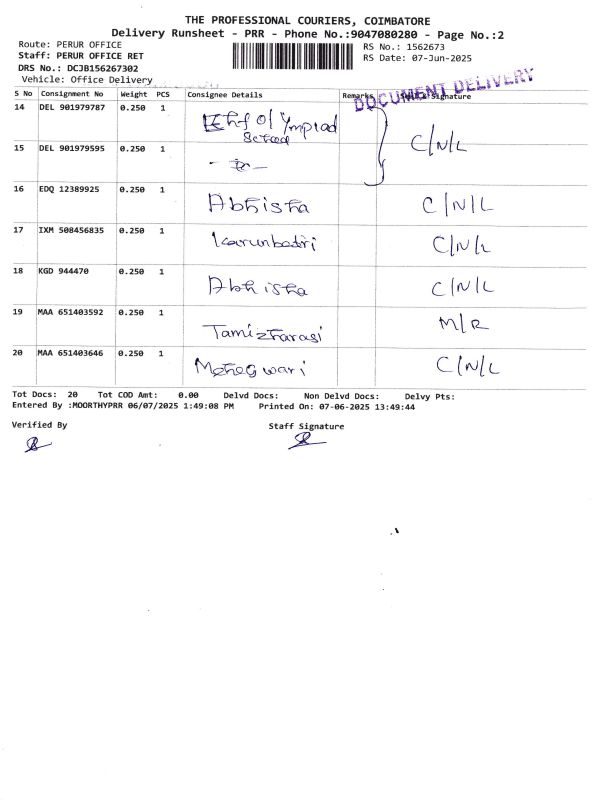 THE PROFESSIONAL COURIERS, COIMBATORE
Delivery Runsheet - PRR - Phone No.:9047080280 - Page No.:2
Route: PERUR OFFICE
Staff: PERUR OFFICE RET
DRS No.: DCJB156267302
Vehicle: Office Delivery
RS No.: 1562673
RS Date: 07-Jun-2025
DOCUMENT DELIVERY
S No Consignment No Weight PCS Consignee Details Remarks Signature
14 DEL 901979787 0.250 1 Olympiad
15 DEL 901979595 0.250 1 C/N/L
16 EDQ 12389925 0.250 1 Abhisha C/N/L
17 IXM 508456835 0.250 1 Karunbadri C/N/L
18 KGD 944470 0.250 1 Abhisha C/N/L
19 MAA 651403592 0.250 1 Tamizharasi M/R
20 MAA 651403646 0.250 1 C/N/L
Tot Docs: 20 Tot COD Amt: 0.00 Delvd Docs: Non Delvd Docs: Delvy Pts:
Entered By :MOORTHYPRR 06/07/2025 1:49:08 PM Printed On: 07-06-2025 13:49:44
Verified By Staff Signature